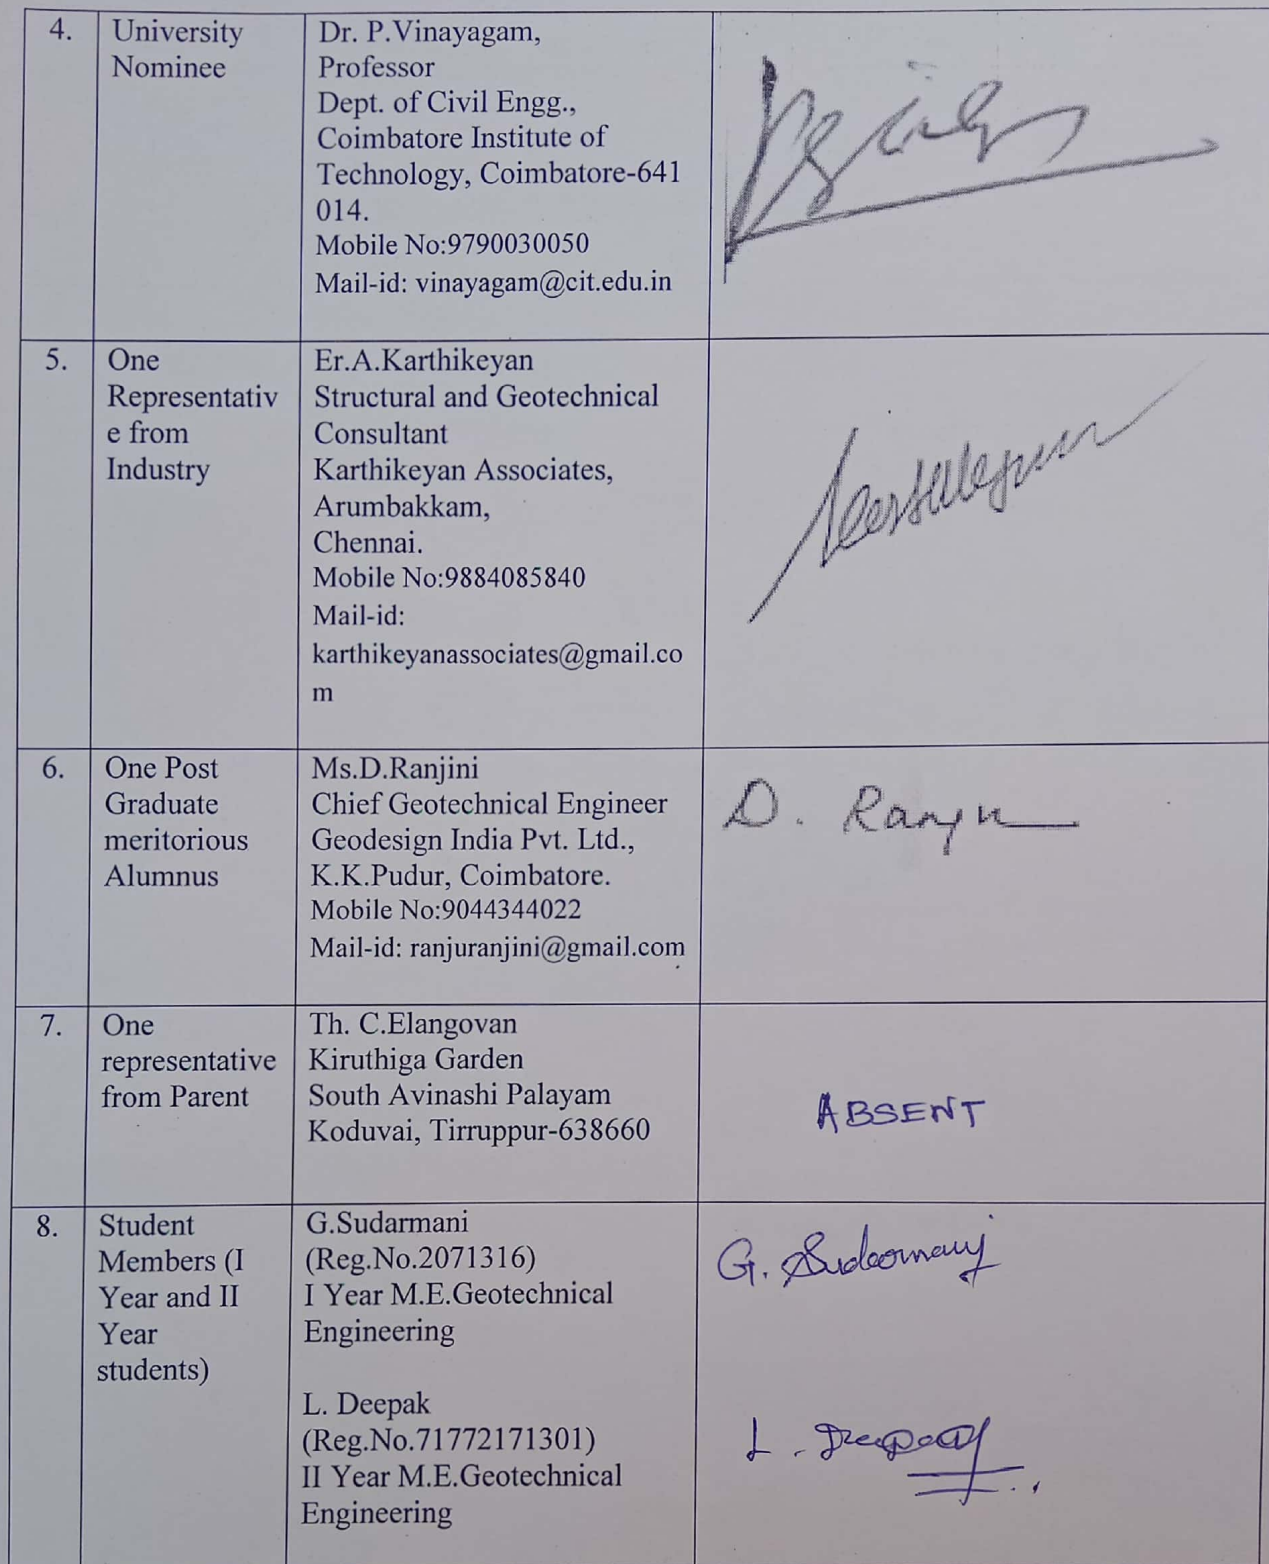 4.
University
Nominee
Dr. P.Vinayagam,
Professor
Dept. of Civil Engg.,
Coimbatore Institute of
Technology, Coimbatore-641
014.
Mobile No:9790030050
Mail-id: vinayagam@cit.edu.in
5.
One
Representativ
e from
Industry
Er.A.Karthikeyan
Structural and Geotechnical
Consultant
Karthikeyan Associates,
Arumbakkam,
Chennai.
Mobile No:9884085840
Mail-id:
karthikeyanassociates@gmail.co
m
6.
One Post
Graduate
meritorious
Alumnus
Ms.D.Ranjini
Chief Geotechnical Engineer
Geodesign India Pvt. Ltd.,
K.K.Pudur, Coimbatore.
Mobile No:9044344022
Mail-id: ranjuranjini@gmail.com
D.
7.
One
representative
from Parent
Th. C.Elangovan
Kiruthiga Garden
South Avinashi Palayam
Koduvai, Tirruppur-638660
ABSENT
8.
Student
Members (I
Year and II
Year
students)
G.Sudarmani
(Reg.No.2071316)
I Year M.E.Geotechnical
Engineering
L. Deepak
(Reg.No.71772171301)
II Year M.E.Geotechnical
Engineering
G. Sudarmani
L. Deepak